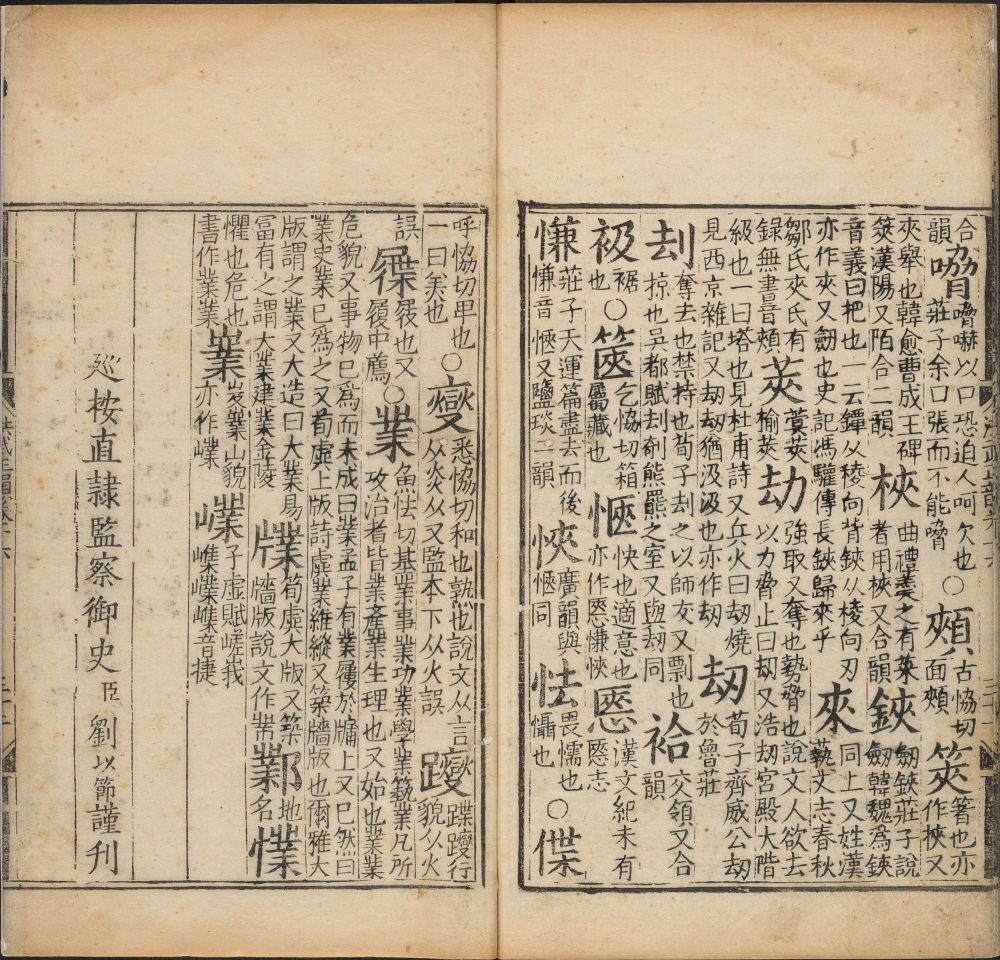 合韻嗋嗋嚇以口恐迫人呵欠也莊子余口張而不能嗋○頰古協切面頰筴箸也亦作挾又
夾舉也韓愈曹成王碑筴漢陽又陌合二韻梜曲禮羹之有菜者用梜又合韻鋏劒鋏莊子說劒韓魏爲鋏
音義曰把也一云鐔从稜向背鋏从稜向刃亦作夾又劒也史記馮驩傳長鋏歸來乎夾同上又姓漢藝文志春秋
鄒氏夾氏有錄無書音頰莢蓂莢榆莢劫強取又奪也勢脅也說文人欲去以力脅止曰劫又浩劫宮殿大階
級也一曰塔也見杜甫詩又兵火曰劫燒見西京雜記又劫劫猶汲汲也亦作刧刼荀子齊威公刼於魯莊
刦奪去也禁持也荀子刦之以師友又剽也掠也吳都賦刦剞熊羆之室又與劫同袷交領又合韻
衱裾也○篋乞協切箱屬藏也愜快也適意也亦作㥦慊㤲㥦漢文紀未有㥦志
慊莊子天運篇盡去而後慊音愜又鹽琰二韻㤲廣韻與愜同怯畏懦也懾也○偞
呼協切卑也一曰美也○燮悉協切和也熟也說文从言从炎从又監本下从火誤躞蹀躞行貌从火
誤屧屐也又履中薦○業魚怯切基業事業功業學業藝業凡所攻治者皆業產業生理也又始也業業
危貌又事物已爲而未成曰業孟子有業屨於牖上又已然曰業史業已爲之又荀虡上版詩虡業維縱又築牆版也爾雅大
版謂之業又大造曰大業易富有之謂大業建業金陵𤗎筍虡大版又築牆版說文作業鄴地名㦿
懼也危也書作業業嶪岌嶪山貌亦作㠍㠍子虛賦嵯峩嶕㠍嶕音捷
巡按直隷監察御史臣劉以節謹刊